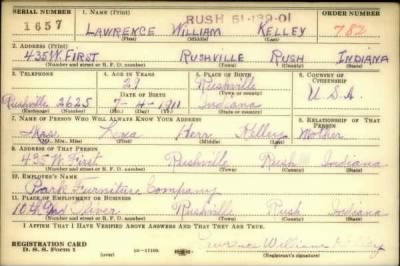 SERIAL NUMBER
1. NAME (Print)
RUSH 51-139-01
ORDER NUMBER
1657
LAWRENCE WILLIAM KELLEY
782
(First) (Middle) (Last)
2. ADDRESS (Print)
435 W. FIRST RUSHVILLE RUSH INDIANA
(Number and street or R. F. D. number) (Town) (County) (State)
3. TELEPHONE
4. AGE IN YEARS
5. PLACE OF BIRTH
6. COUNTRY OF CITIZENSHIP
Rushville
DATE OF BIRTH
U.S.A.
Rushville 2625
Indiana
(Exchange) (Number)
(Mo.) (Day) (Yr.)
(State or country)
7. NAME OF PERSON WHO WILL ALWAYS KNOW YOUR ADDRESS
8. RELATIONSHIP OF THAT PERSON
Kelley Mother
(Mr., Mrs., Miss) (First) (Middle) (Last)
9. ADDRESS OF THAT PERSON
435 W. First Rushville Rush Indiana
(Number and street or R. F. D. number) (Town) (County) (State)
10. EMPLOYER'S NAME
Park Furniture Company
11. PLACE OF EMPLOYMENT OR BUSINESS
Rushville Rush Indiana
(Number and street or R. F. D. number) (Town) (County) (State)
I AFFIRM THAT I HAVE VERIFIED ABOVE ANSWERS AND THAT THEY ARE TRUE.
REGISTRATION CARD
D. S. S. Form 1
Lawrence William Kelley
(Registrant's signature)